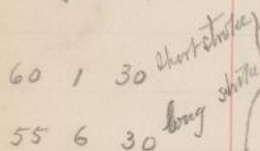 60 1 30 short stroke
55 6 30 long stroke